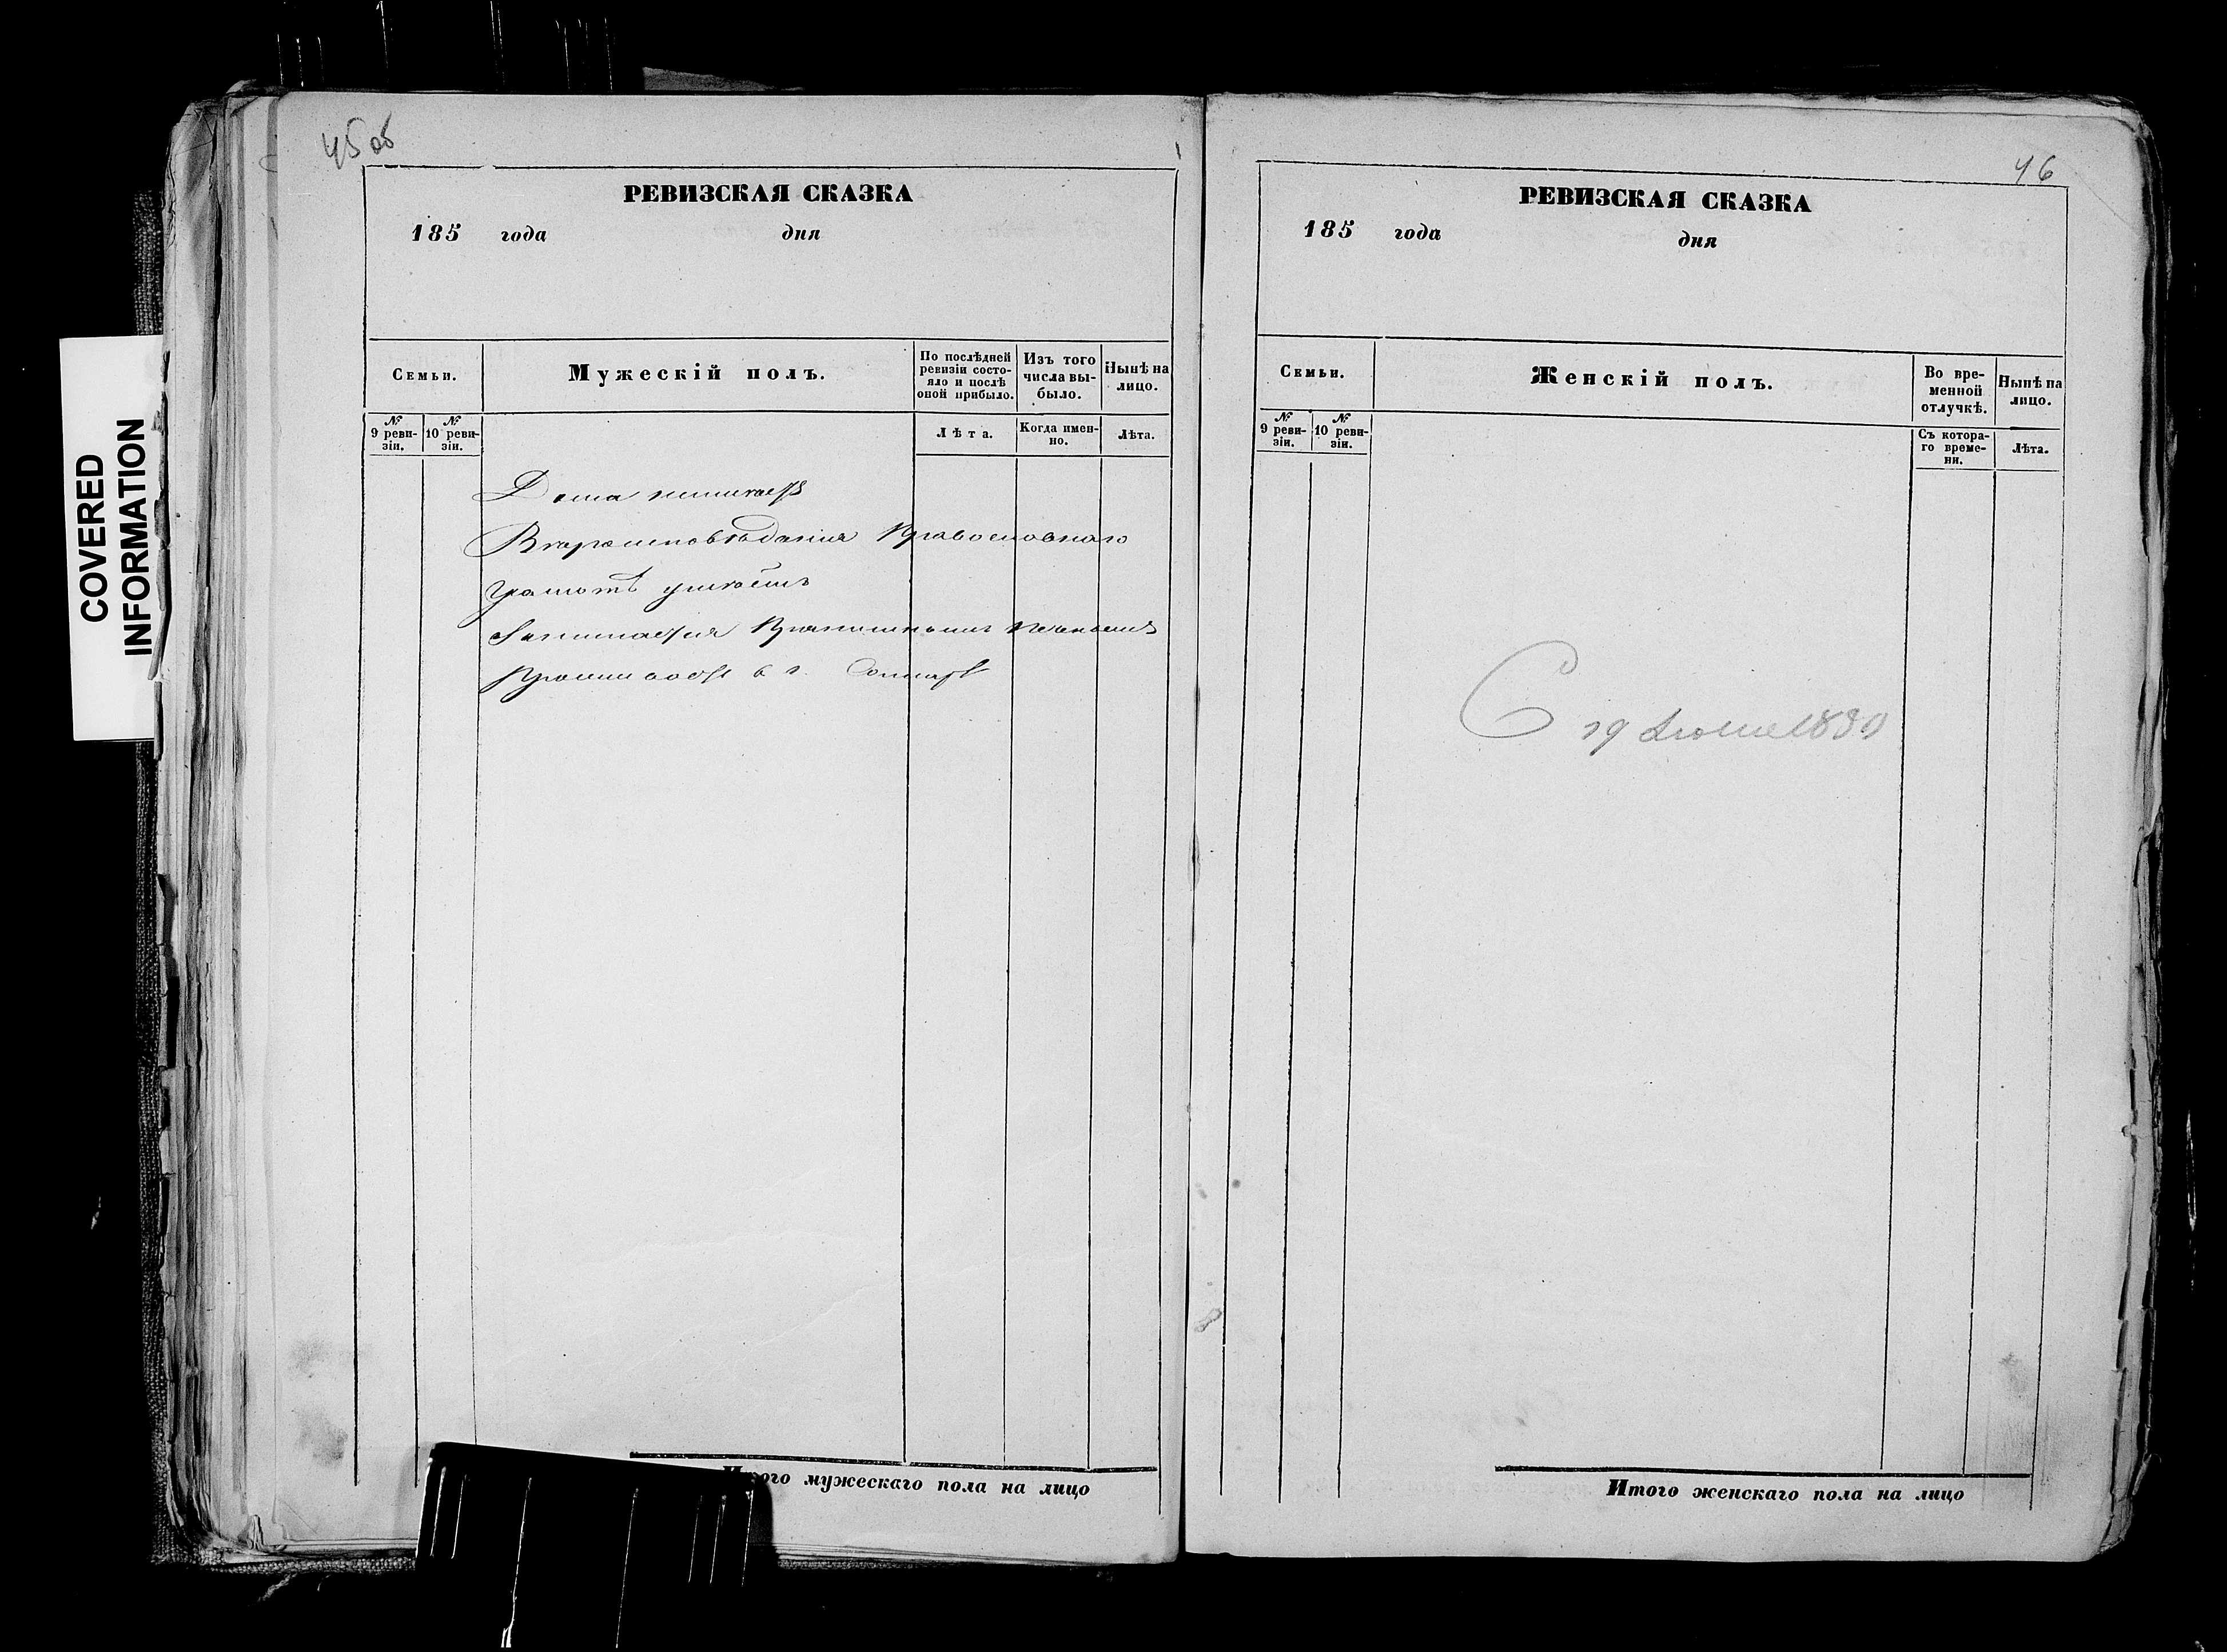 COVERED
INFORMATION
45 об
РЕВИЗСКАЯ СКАЗКА
185 года дня
Семьи.
Мужескій полъ.
По послѣдней ревизіи состо-
яло и послѣ оной прибыло.
Изъ того числа вы-
было.
Нынѣ на лицо.
№ 9 реви-
зіи.
№ 10 реви-
зіи.
Лѣта.
Когда имен-
но.
Лѣта.
Дома неимѣетъ
Вѣроисповѣданія Православнаго
Грамотѣ умѣетъ
Занимается
Проживаетъ в г. Самарѣ
Итого мужескаго пола на лицо
46
РЕВИЗСКАЯ СКАЗКА
185 года дня
Семьи.
Женскій полъ.
Во вре-
менной отлучкѣ.
Нынѣ на лицо.
№ 9 реви-
зіи.
№ 10 реви-
зіи.
Съ котора-
го време-
ни.
Лѣта.
С 19
Итого женскаго пола на лицо